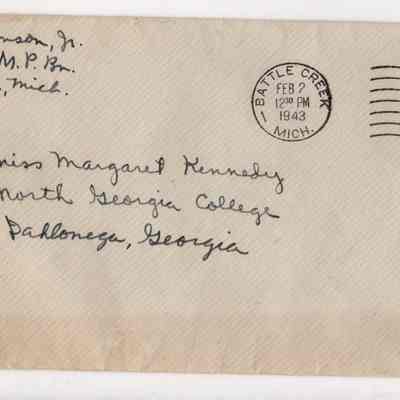 nson, Jr.
M. P. Bn.
, Mich.
BATTLE CREEK
FEB 2
12 30 PM
1943
1
MICH.
Miss Margaret Kennedy
North Georgia College
Dahlonega, Georgia